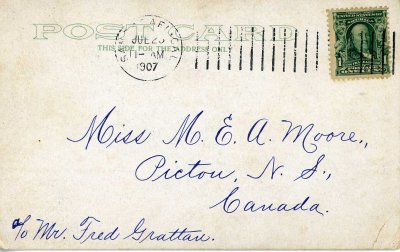 POST CARD
THIS SIDE FOR THE ADDRESS ONLY
JUL 23
11-AM
1907
Miss M. E. A. Moore,
Pictou, N. S.,
Canada.
c/o Mr. Fred Grattan.